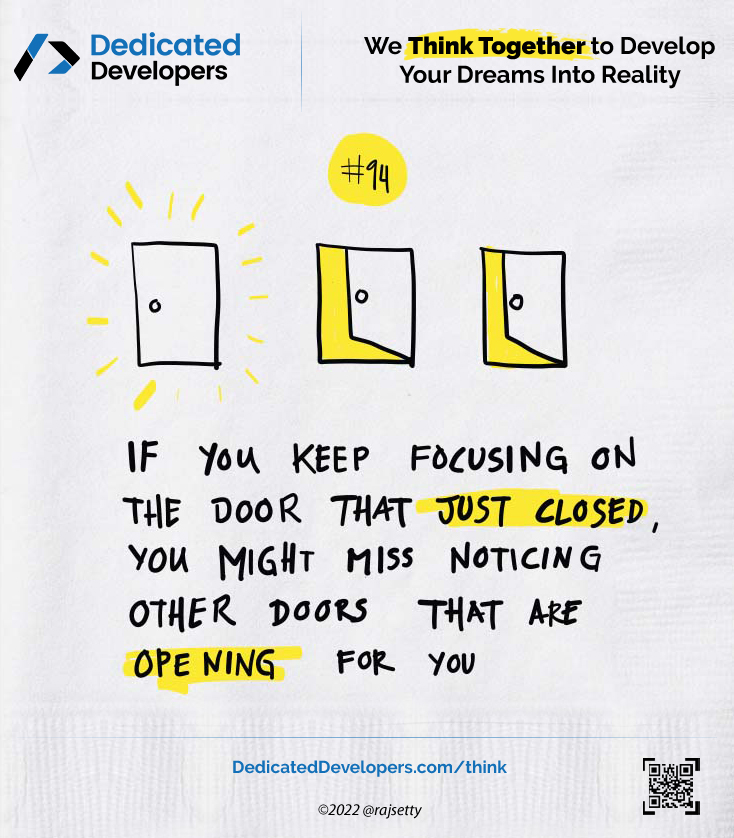 Dedicated
Developers
We Think Together to Develop
Your Dreams Into Reality
#94
IF YOU KEEP FOCUSING ON
THE DOOR THAT JUST CLOSED,
YOU MIGHT MISS NOTICING
OTHER DOORS THAT ARE
OPENING FOR YOU
DedicatedDevelopers.com/think
©2022 @rajsetty